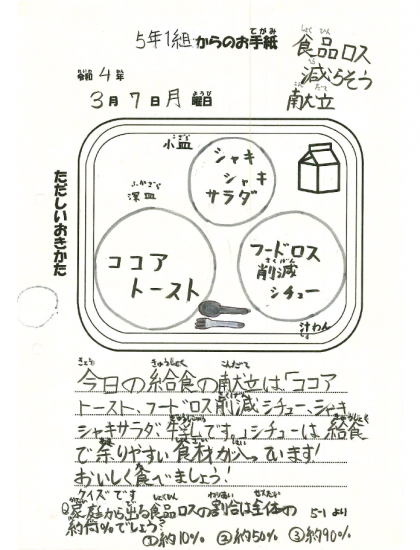 5年1組からのお手紙
食品ロス
減らそう
献立
令和4年
3月7日月曜日
ただしいおきかた
小皿
シャキ
シャキ
サラダ
深皿
ココア
トースト
フードロス
削減
シチュー
汁わん
今日の給食の献立は、「ココア
トースト、フードロス削減シチュー、シャキ
シャキサラダ、牛乳です。」シチューは給食
で余りやすい食材が入っています!
おいしく食べましょう!
クイズです
Q家庭から出る食品ロスの割合は全体の
約何%でしょう?
5-1より
①約10% ②約50% ③約90%